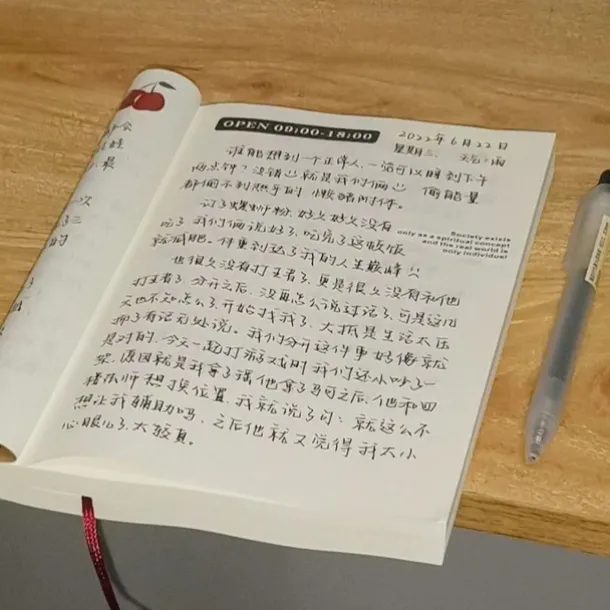 会
娃
晨
一次
了三
的
OPEN 09:00-18:00
2022年6月22日
星期三 天气:雨
谁能想到一个正常人一活可以睡到下午
两点钟?没错就是我们俩 偷能量
都偷不到 的 懒 时件。
订了爆炒粉,好久好久没有
吃了,我们俩说好了,吃完了这顿饭
就减肥。体重到达了我的人生巅峰
Society exists
only as a spiritual concept
and the real world is
only individual
也很久没有打王者了,更是很久没有和他
打王者了,分开之后,没再怎么说过话了,可是这几
天也不知怎么了,开始找我了,大抵是生活太压
抑了有话无处说。我们分开这件事好像就
是对的,今天一起打游戏时我们还小吵了一
架,原因就是我拿了瑶他拿了马可之后,他和四
楼法师想换位置,我就说了句:就这么不
想让我辅助吗,之后他就又觉得我太小
心眼儿了,太较真。